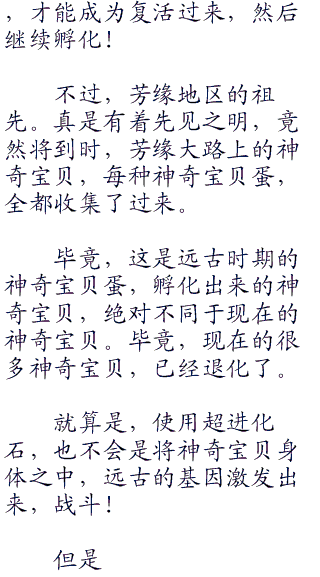 ，才能成为复活过来，然后
继续孵化！
不过，芳缘地区的祖
先。真是有着先见之明，竟
然将到时，芳缘大路上的神
奇宝贝，每种神奇宝贝蛋，
全都收集了过来。
毕竟，这是远古时期的
神奇宝贝蛋，孵化出来的神
奇宝贝，绝对不同于现在的
神奇宝贝。毕竟，现在的很
多神奇宝贝，已经退化了。
就算是，使用超进化
石，也不会是将神奇宝贝身
体之中，远古的基因激发出
来，战斗！
但是